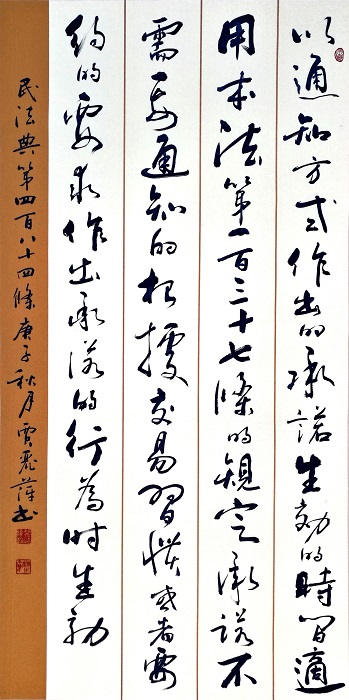 以通知方式作出的承諾生効的時間適
用本法第一百三十七條的規定承諾不
需要通知的根據交易習慣或者要
約的要求作出承諾的行為时生効
民法典第四百八十四條庚子秋月賈书